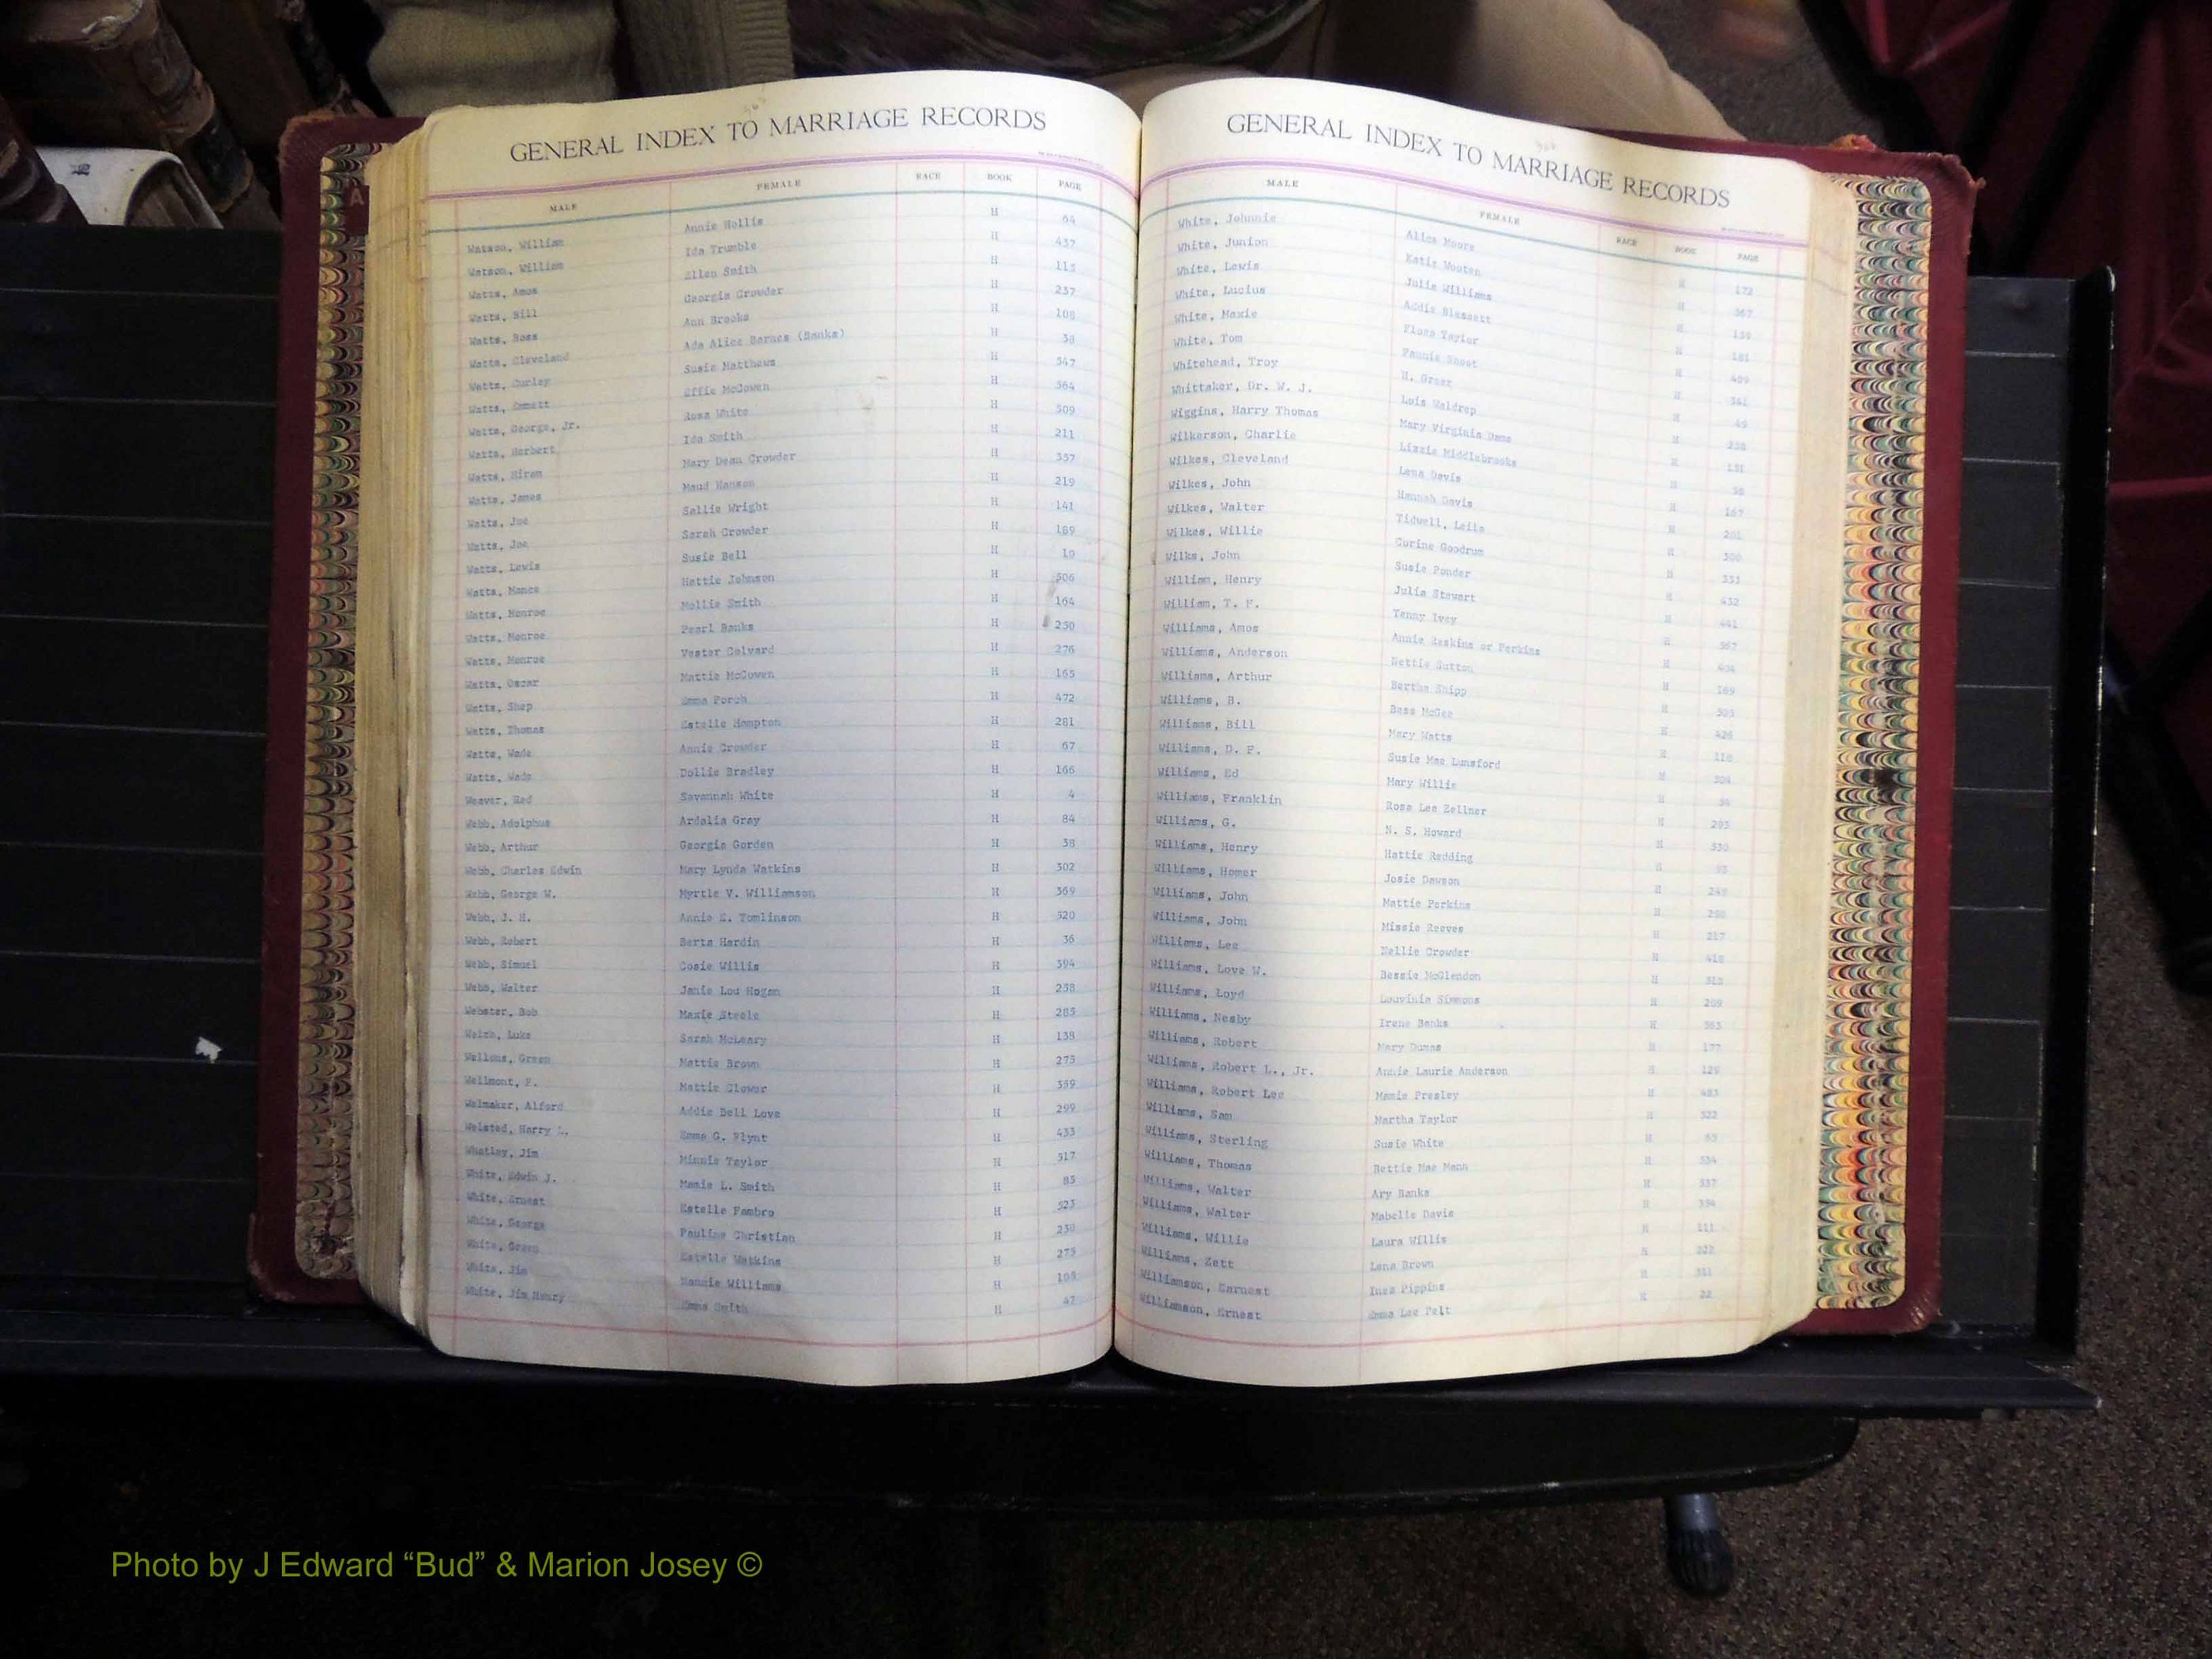 GENERAL INDEX TO MARRIAGE RECORDS
MALE FEMALE RACE BOOK PAGE
Watson, William Annie Hollis H 64
Watson, William Ida Trumble H 437
Watts, Amos Ellen Smith H 115
Watts, Bill Georgia Crowder H 237
Watts, Boss Ann Brooks H 108
Watts, Cleveland Ada Alice Barnes (Banks) H 38
Watts, Curley Susie Matthews H 547
Watts, Emmett Effie McCowen H 564
Watts, George, Jr. Rosa White H 509
Watts, Herbert Ida Smith H 211
Watts, Hiram Mary Dean Crowder H 357
Watts, James Maud Hanson H 219
Watts, Joe Sallie Wright H 141
Watts, Joe Sarah Crowder H 189
Watts, Lewis Susie Bell H 10
Watts, Mance Hattie Johnson H 506
Watts, Monroe Mollie Smith H 164
Watts, Monroe Pearl Banks H 250
Watts, Monroe Vester Colvard H 276
Watts, Oscar Mattie McCowen H 165
Watts, Shep Emma Porch H 472
Watts, Thomas Estelle Hampton H 281
Watts, Wade Annie Crowder H 67
Watts, Wade Dollie Bradley H 166
Weaver, Red Savannah White H 4
Webb, Adolphus Ardelia Gray H 84
Webb, Arthur Georgia Gorden H 38
Webb, Charles Edwin Mary Lynda Watkins H 302
Webb, George W. Myrtle V. Williamson H 369
Webb, J. H. Annie E. Tomlinson H 520
Webb, Robert Berta Hardin H 36
Webb, Simuel Cosie Willis H 394
Webb, Walter Janie Lou Hogan H 238
Webster, Bob Maxie Steele H 285
Welch, Luke Sarah McLeary H 138
Wellons, Green Mattie Brown H 275
Wellmont, F. Mattie Glover H 559
Welmaker, Alford Addie Bell Love H 299
Welsted, Harry L. Emma G. Flynt H 433
Whatley, Jim Minnie Taylor H 517
White, Edwin J. Mamie L. Smith H 85
White, Ernest Estelle Fambro H 523
White, George Pauline Christian H 230
White, Green Estelle Watkins H 275
White, Jim Nannie Williams H 105
White, Jim Henry Emma Smith H 47
GENERAL INDEX TO MARRIAGE RECORDS
MALE FEMALE RACE BOOK PAGE
White, Johnnie Alice Moore H 172
White, Junion Katie Wooten H 567
White, Lewis Julia Williams H 159
White, Lucius Addie Blassett H 181
White, Maxie Flora Taylor H 489
White, Tom Fannie Shoot H 341
Whitehead, Troy H. Greer H 49
Whittaker, Dr. W. J. Lois Waldrep H 258
Wiggins, Harry Thomas Mary Virginia Dame H 151
Wilkerson, Charlie Lizzie Middlebrooks H 56
Wilkes, Cleveland Lena Davis H 167
Wilkes, John Hannah Davis H 201
Wilkes, Walter Tidwell, Leila H 300
Wilkes, Willie Corine Goodrum H 333
Wilks, John Susie Ponder H 432
William, Henry Julia Stewart H 441
William, T. F. Tenny Ivey H 557
Williams, Amos Annie Haskins or Perkins H 404
Williams, Anderson Nettie Sutton H 169
Williams, Arthur Bertha Shipp H 505
Williams, B. Bess McGee H 426
Williams, Bill Mary Watts H 118
Williams, D. F. Susie Mae Lunsford H 504
Williams, Ed Mary Willis H 54
Williams, Franklin Rosa Lee Zellner H 295
Williams, G. N. S. Howard H 530
Williams, Henry Hattie Redding H 95
Williams, Homer Josie Dawson H 249
Williams, John Mattie Perkins H 290
Williams, John Missie Reeves H 217
Williams, Lee Nellie Crowder H 418
Williams, Love W. Bessie McGlendon H 518
Williams, Loyd Louvinia Simmons H 209
Williams, Nesby Irene Banks H 563
Williams, Robert Mary Dumas H 177
Williams, Robert L., Jr. Annie Laurie Anderson H 129
Williams, Robert Lee Mamie Presley H 483
Williams, Sam Martha Taylor H 522
Williams, Sterling Susie White H 63
Williams, Thomas Bettie Mae Mann H 534
Williams, Walter Ary Banks H 337
Williams, Walter Mabelle Davis H 394
Williams, Willie Laura Willis H 111
Williams, Zett Lena Brown H 222
Williamson, Earnest Inez Pippins H 311
Williamson, Ernest Emma Lee Pelt H 22
Photo by J Edward “Bud” & Marion Josey ©